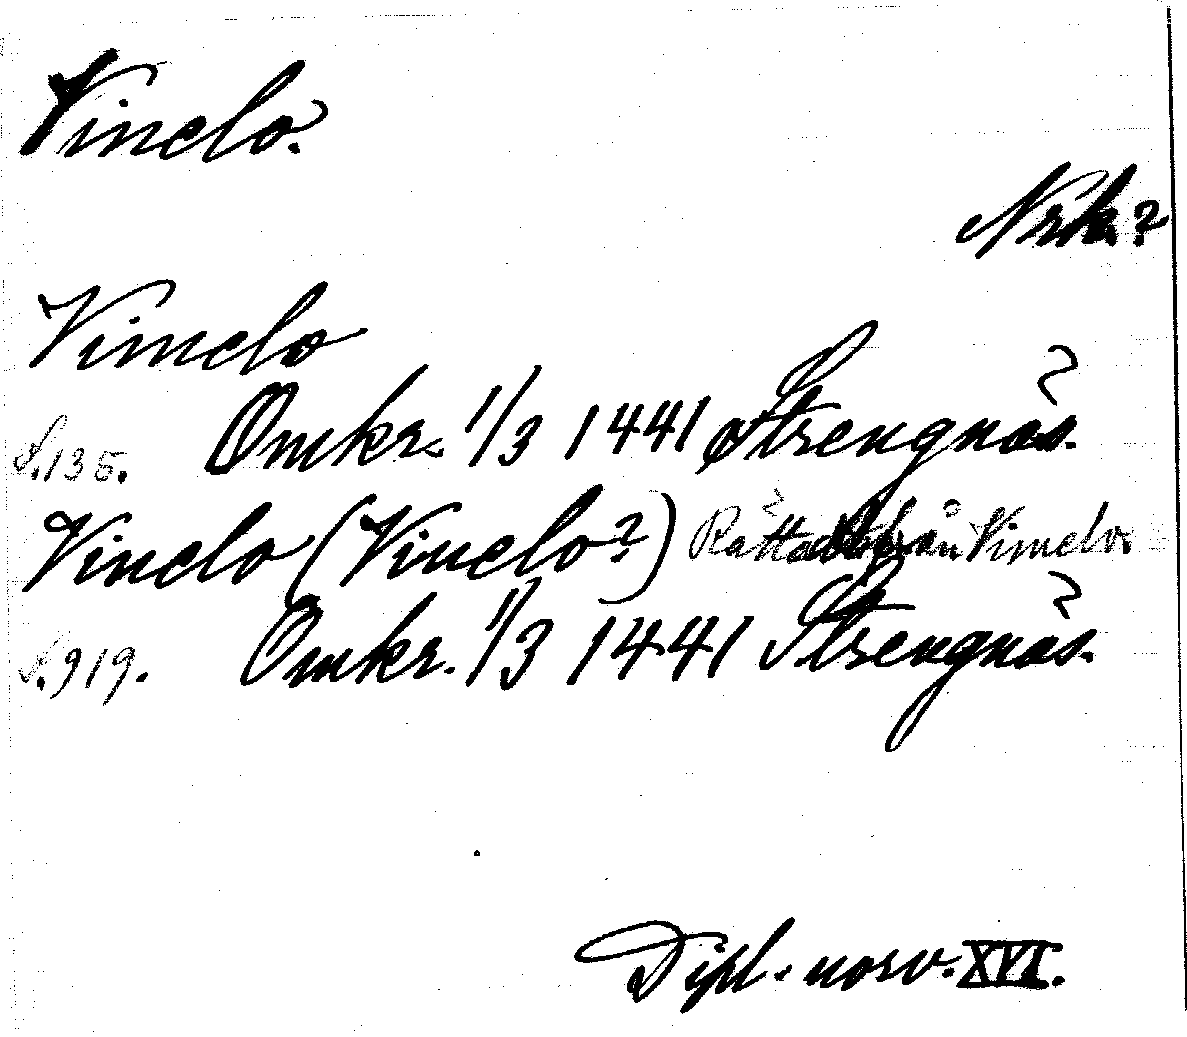 Vinclo.
Nrk.?
Vimclo
S.135. Omkr. 1/3 1441 Strengnäs.
Vinclo (Vinclo?) Rättadt från Vimclo.
S.919. Omkr. 1/3 1441 Strengnäs.
Dipl. norv. XVI.